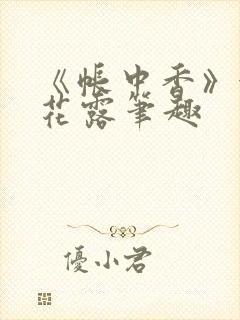 《帳中香》
花露筆趣
優小君